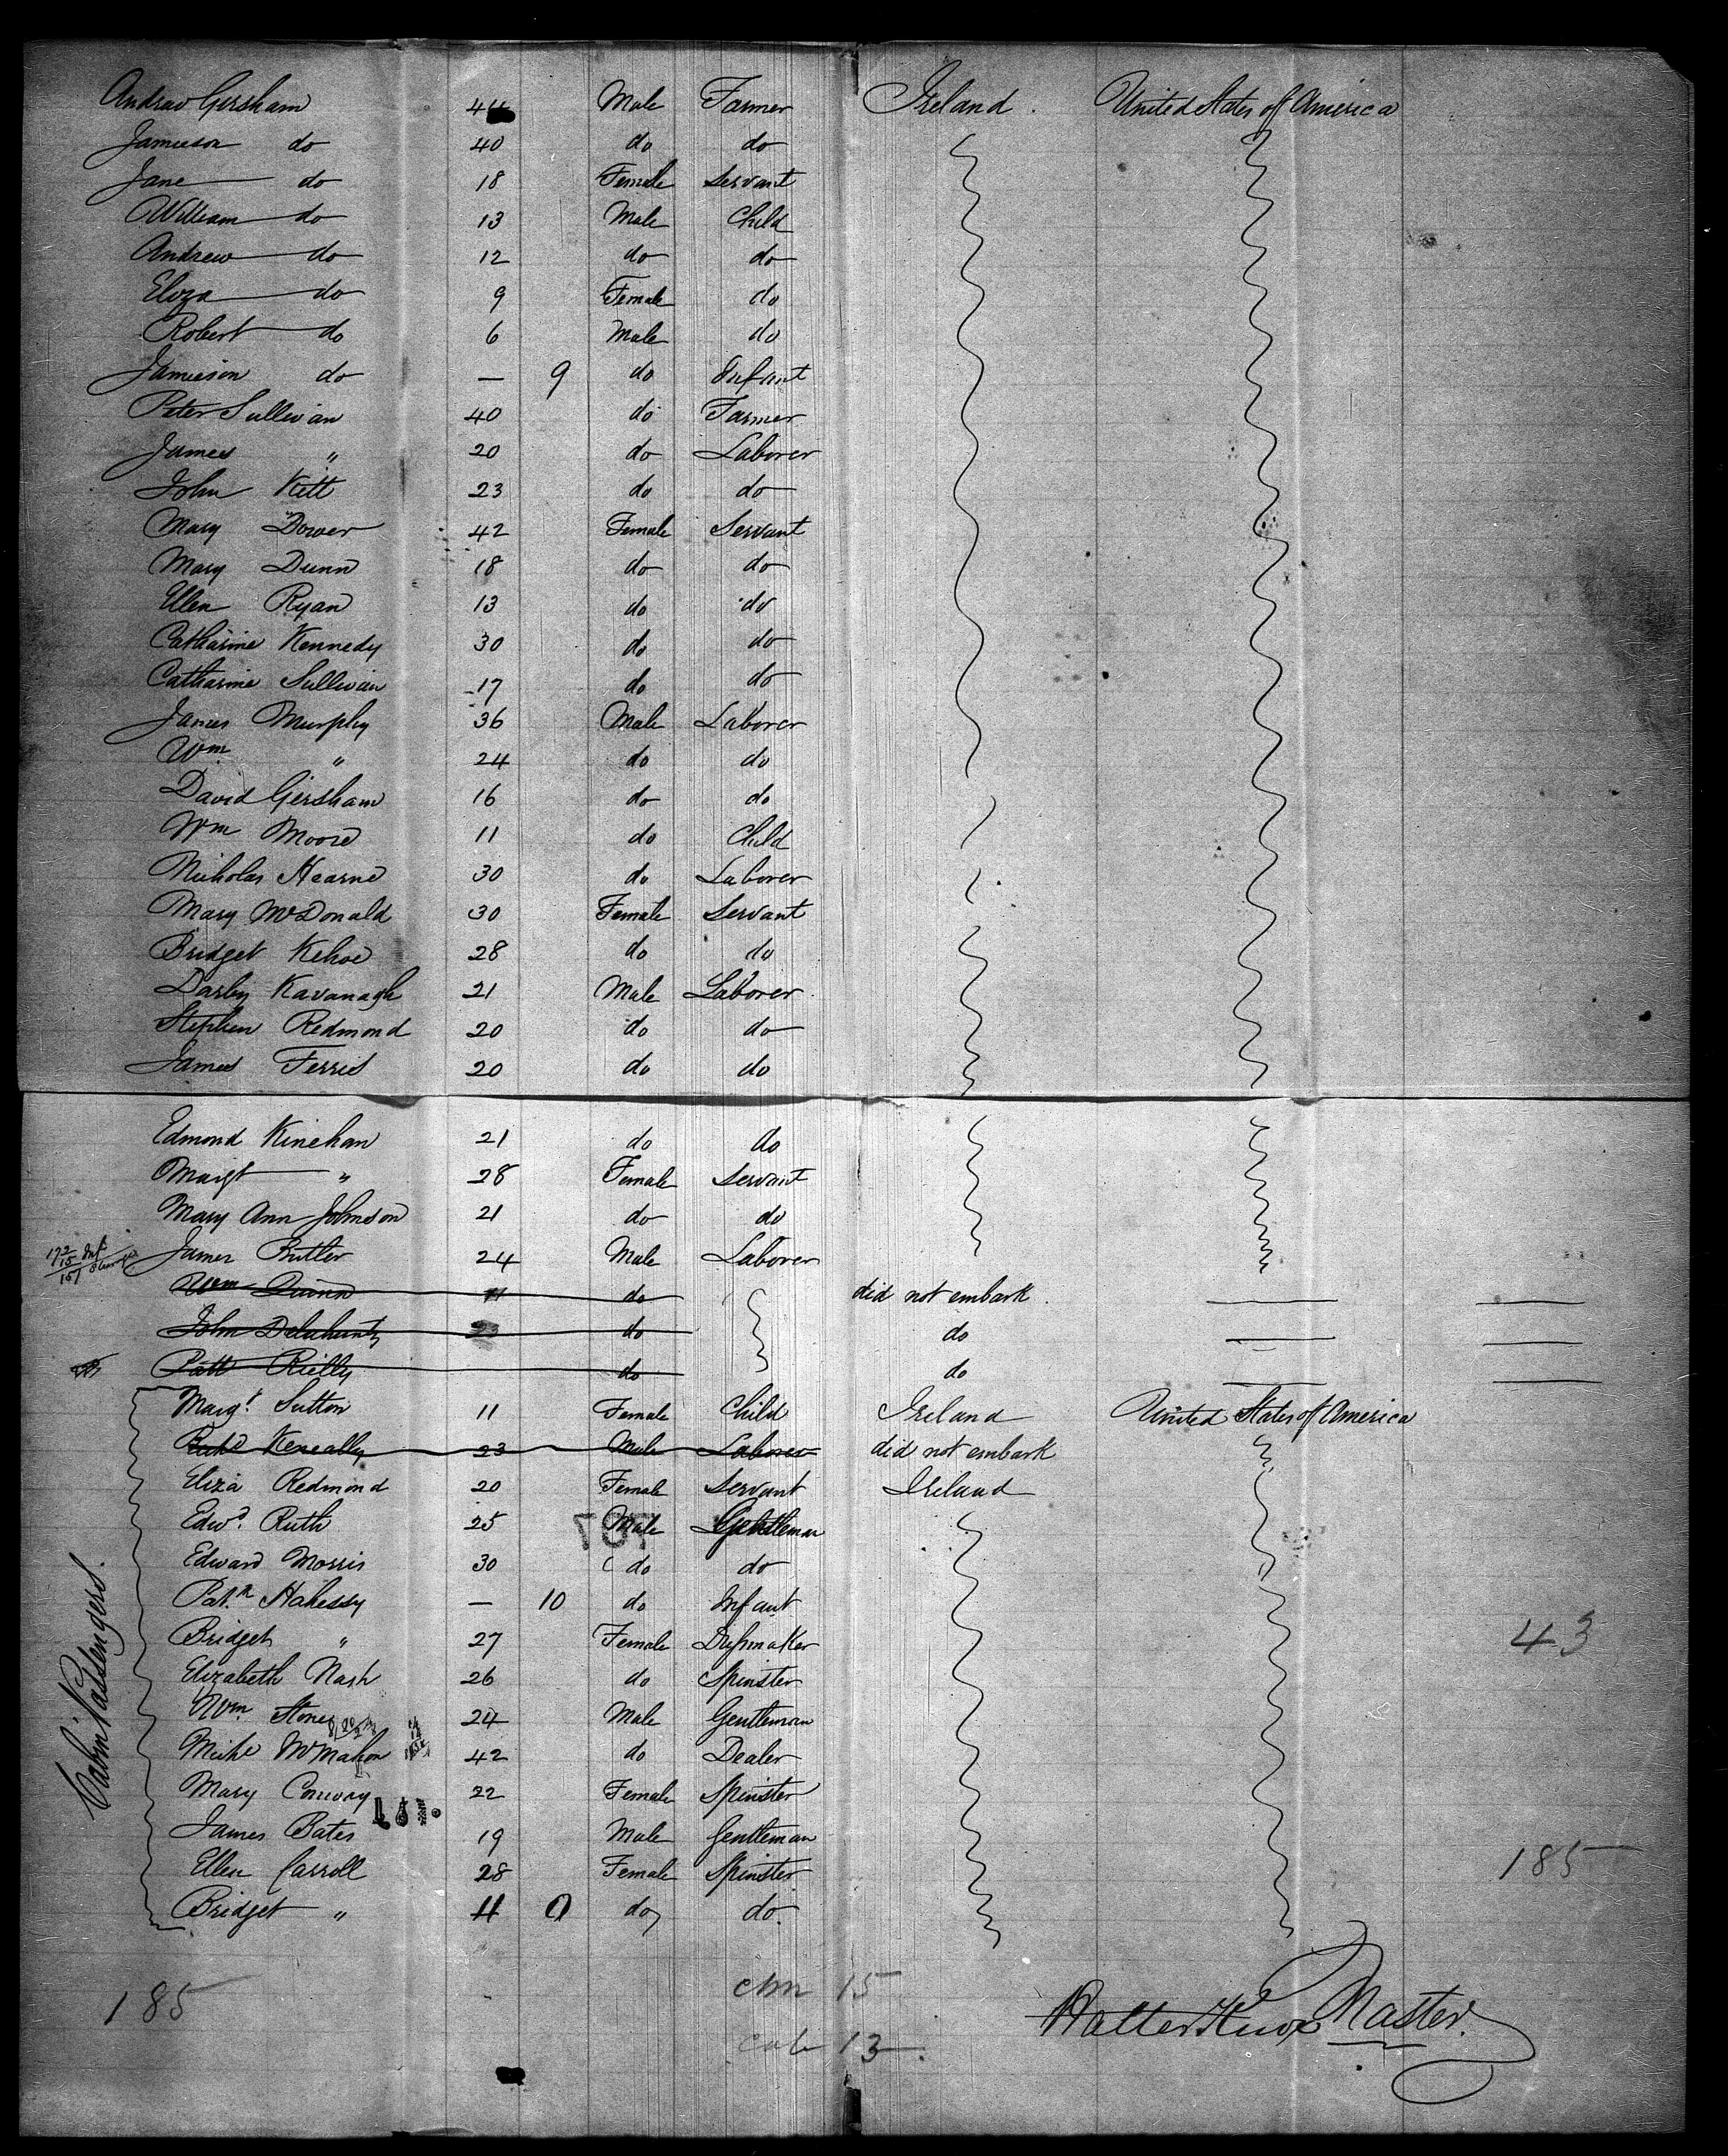 Andrew Gersham 44 Male Farmer Ireland United States of America
Jamieson do 40 do do
Jane do 18 Female Servant
William do 13 Male Child
Andrew do 12 do do
Eliza do 9 Female do
Robert do 6 Male do
Jamieson do — 9 do Infant
Peter Sullivan 40 do Farmer
James " 20 do Laborer
John Kitt 23 do do
Mary Dower 42 Female Servant
Mary Dunn 18 do do
Ellen Ryan 13 do do
Catharine Kennedy 30 do do
Catharine Sullivan 17 do do
James Murphy 36 Male Laborer
Wm " 24 do do
David Gersham 16 do do
Wm Moore 11 do Child
Nicholas Hearne 30 do Laborer
Mary McDonald 30 Female Servant
Bridget Kehoe 28 do do
Darby Kavanagh 21 Male Laborer
Stephen Redmond 20 do do
James Ferris 20 do do
Edmond Kinehan 21 do do
Margt " 28 Female Servant
Mary Ann Johnson 21 do do
172 15 Inf 157 James Butler 24 Male Laborer
Wm Quinn do did not embark
John Delahunty 23 do do
Patt Rielly do do
Margt. Sutton 11 Female Child Ireland United States of America
Keneally 23 Male Laborer did not embark
Eliza Redmond 20 Female Servant Ireland
Edwd. Ruth 25 Male Gentleman
Edward Morris 30 do do
Patk Hahessy — 10 do Infant
Bridget " 27 Female Dressmaker 43
Elizabeth Nash 26 do Spinster
Wm Stones 24 Male Gentleman
Michl McMahon 42 do Dealer
Mary Conway 22 Female Spinster
James Bates 19 Male Gentleman
Ellen Carroll 28 Female Spinster 185
Bridget " 11 0 do do
Cabin Passengers.
185 chn 15
cab 13
Walter Knox Master.